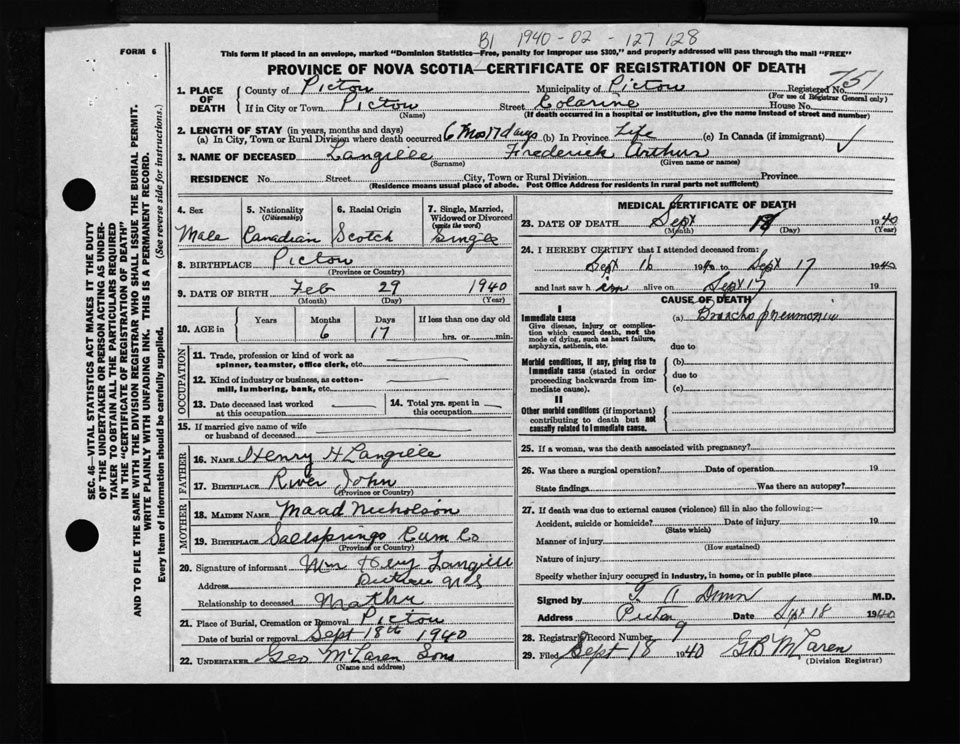 B1 1940 - 02 - 127 128
FORM 6
This form if placed in an envelope, marked "Dominion Statistics—Free, penalty for improper use $300," and properly addressed will pass through the mail "FREE"
PROVINCE OF NOVA SCOTIA—CERTIFICATE OF REGISTRATION OF DEATH
1. PLACE OF DEATH
County of Pictou Municipality of Pictou Registered No. 751
(For use of Registrar General only)
If in City or Town Pictou Street House No.
(Name) (If death occurred in a hospital or institution, give the name instead of street and number)
2. LENGTH OF STAY (in years, months and days)
(a) In City, Town or Rural Division where death occurred 6 mos 17 days (b) In Province Life (c) In Canada (if immigrant)
3. NAME OF DECEASED Langille Frederick Arthur
(Surname) (Given name or names)
RESIDENCE No. Street City, Town or Rural Division Province
(Residence means usual place of abode. Post Office Address for residents in rural parts not sufficient)
4. Sex Male
5. Nationality (Citizenship) Canadian
6. Racial Origin Scotch
7. Single, Married, Widowed or Divorced (write the word) Single
8. BIRTHPLACE Pictou
(Province or Country)
9. DATE OF BIRTH Feb 29 1940
(Month) (Day) (Year)
10. AGE in Years Months Days If less than one day old
6 17 hrs. or min.
OCCUPATION
11. Trade, profession or kind of work as spinner, teamster, office clerk, etc.
12. Kind of industry or business, as cotton-mill, lumbering, bank, etc.
13. Date deceased last worked at this occupation
14. Total yrs. spent in this occupation
15. If married give name of wife or husband of deceased
FATHER
16. NAME Henry H Langille
17. BIRTHPLACE River John
(Province or Country)
MOTHER
18. MAIDEN NAME Maad Nicholson
19. BIRTHPLACE Saltsprings Cum Co
(Province or Country)
20. Signature of informant Mrs Langille
Address Pictou N S
Relationship to deceased Mother
21. Place of Burial, Cremation or Removal Pictou
Date of burial or removal Sept 18th 1940
22. UNDERTAKER Geo McLaren Sons
(Name and address)
MEDICAL CERTIFICATE OF DEATH
23. DATE OF DEATH Sept 1940
(Month) (Day) (Year)
24. I HEREBY CERTIFY that I attended deceased from:
Sept 16 1940 to Sept 17 1940
and last saw him alive on Sept 17 19
CAUSE OF DEATH
I
Immediate cause
Give disease, injury or complication which caused death, not the mode of dying, such as heart failure, asphyxia, asthenia, etc.
(a) Broncho pneumonia
due to
Morbid conditions, if any, giving rise to immediate cause (stated in order proceeding backwards from immediate cause).
(b)
due to
(c)
II
Other morbid conditions (if important) contributing to death but not causally related to immediate cause.
25. If a woman, was the death associated with pregnancy?
26. Was there a surgical operation? Date of operation 19
State findings Was there an autopsy?
27. If death was due to external causes (violence) fill in also the following:—
Accident, suicide or homicide? Date of injury 19
(State which)
Manner of injury
(How sustained)
Nature of injury
Specify whether injury occurred in industry, in home, or in public place
Signed by Dunn M.D.
Address Pictou Date Sept 18 1940
28. Registrar's Record Number 9
29. Filed Sept 18 1940 GB McLaren
(Division Registrar)
SEC. 46—VITAL STATISTICS ACT MAKES IT THE DUTY
OF THE UNDERTAKER OR PERSON ACTING AS UNDER-
TAKER TO OBTAIN ALL THE PARTICULARS REQUIRED
IN THE "CERTIFICATE OF REGISTRATION OF DEATH"
AND TO FILE THE SAME WITH THE DIVISION REGISTRAR WHO SHALL ISSUE THE BURIAL PERMIT.
WRITE PLAINLY WITH UNFADING INK. THIS IS A PERMANENT RECORD.
Every item of Information should be carefully supplied. (See reverse side for instructions.)